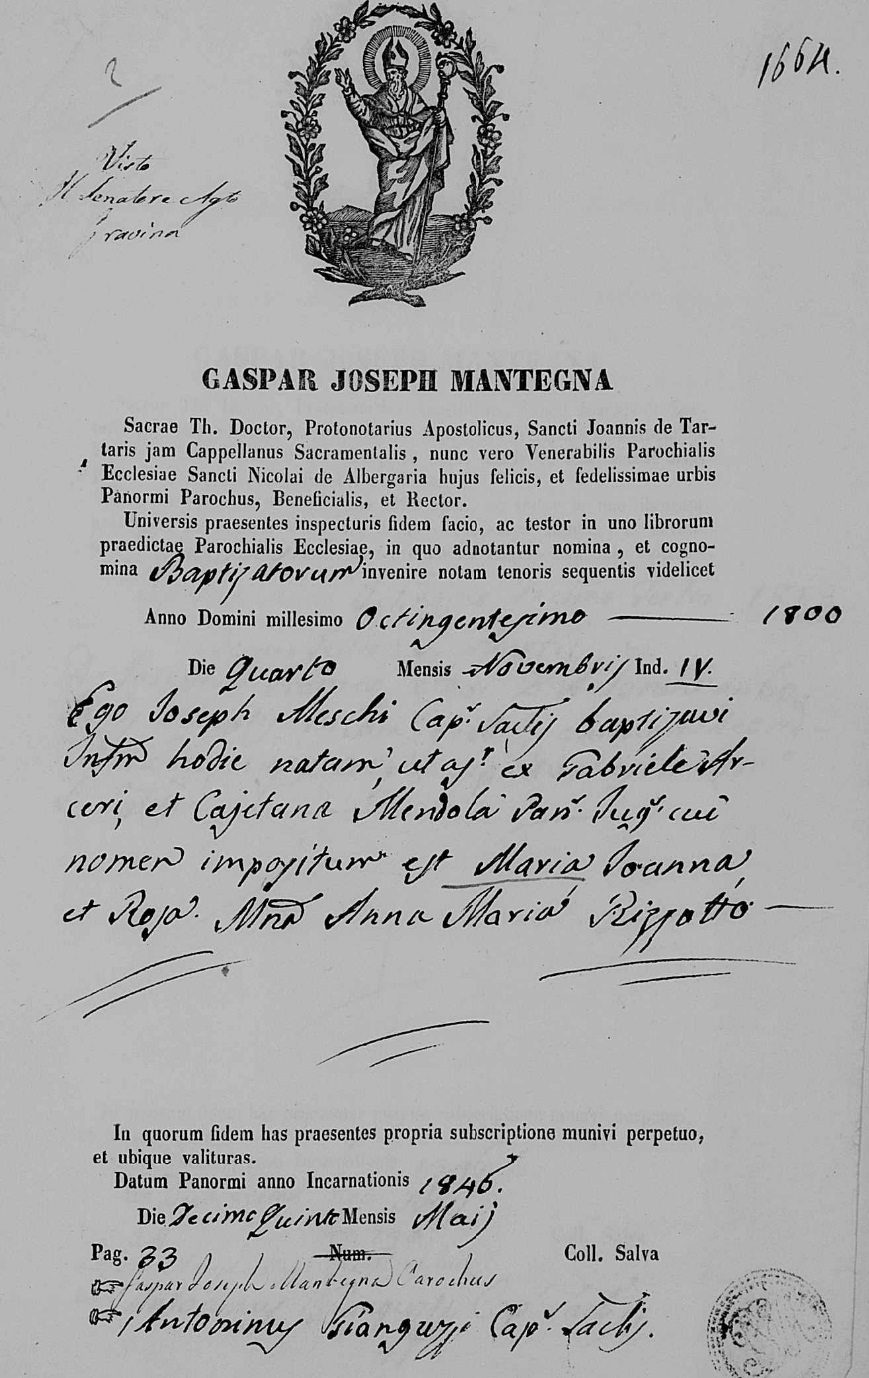 1664.
Visto
Il Senatore Agte
Gravina
GASPAR JOSEPH MANTEGNA
Sacrae Th. Doctor, Protonotarius Apostolicus, Sancti Joannis de Tar-
taris jam Cappellanus Sacramentalis, nunc vero Venerabilis Parochialis
Ecclesiae Sancti Nicolai de Albergaria hujus felicis, et fedelissimae urbis
Panormi Parochus, Beneficialis, et Rector.
Universis praesentes inspecturis fidem facio, ac testor in uno librorum
praedictae Parochialis Ecclesiae, in quo adnotantur nomina, et cogno-
mina Baptizatorum invenire notam tenoris sequentis videlicet
Anno Domini millesimo Octingentesimo — 1800
Die Quarto Mensis Novembris Ind. IV.
Ego Joseph Meschi Capᵗ. Sactis baptizavi
Infm hodie natam, ut asʳ. ex Gabriele Ar-
ceri, et Cajetana Mendola Panʳ. Jugˢ. cui
nomen impositum est Maria Joanna,
et Rosa. Mna Anna Maria Rizzotto —
In quorum fidem has praesentes propria subscriptione munivi perpetuo,
et ubique valituras.
Datum Panormi anno Incarnationis 1846.
Die Decimo Quinto Mensis Maij
Pag. 33 Num. Coll. Salva
Gaspar Joseph Mantegna Parochus
Antoninus Gianguzzi Capᵗ. Sactis.